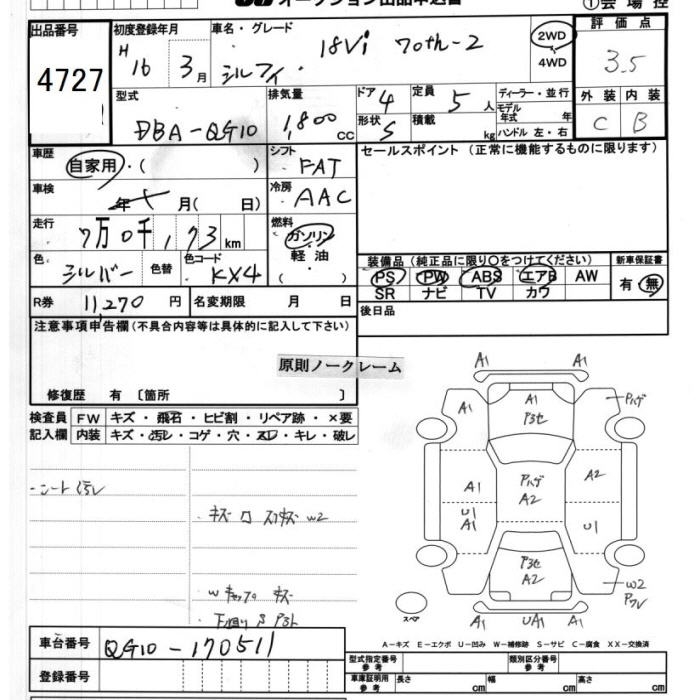 オークション出品申込書
① 会 場 控
出品番号
4727
初度登録年月
H16 3月
車名・グレード
シルフィ 18Vi 70th-2
2WD
4WD
評 価 点
3.5
外 装 内 装
C B
型式
DBA-QG10
排気量
1,800 CC
ドア 4
形状 S
定員 5 人
積載 kg
ディーラー・並行
モデル年式 年
ハンドル 左・右
車歴
自家用・( )
シフト
FAT
セールスポイント (正常に機能するものに限ります)
車検
年 月( 日)
冷房
AAC
走行
7万0千,173 km
燃料
ガソリン
軽 油
( ・ )
色
シルバー
色替
色コード
KX4
装備品 (純正品に限り○をつけてください)
PS PW ABS エアB AW
SR ナビ TV カワ
新車保証書
有・無
R券 11,270 円
名変期限 月 日
後日品
注意事項申告欄 (不具合内容等は具体的に記入して下さい)
原則ノークレーム
修復歴 有 〔箇所 〕
検査員記入欄
FW キズ・飛石・ヒビ割・リペア跡・×要
内装 キズ・汚レ・コゲ・穴・スレ・キレ・破レ
・シート汚レ
・キズ
W2
キズ
A1 A1
A1
A1
Pハゲ
Pハゲ
A2
A2
A1
U1
A1
U1
A2
W2
スペア
A1 UA1 A1
A－キズ E－エクボ U－凹み W－補修跡 S－サビ C－腐食 XX－交換済
車台番号 QG10-170511
登録番号
型式指定番号 参 考
類別区分番号 参 考
車庫証明用 参 考
長さ cm 幅 cm 高さ cm